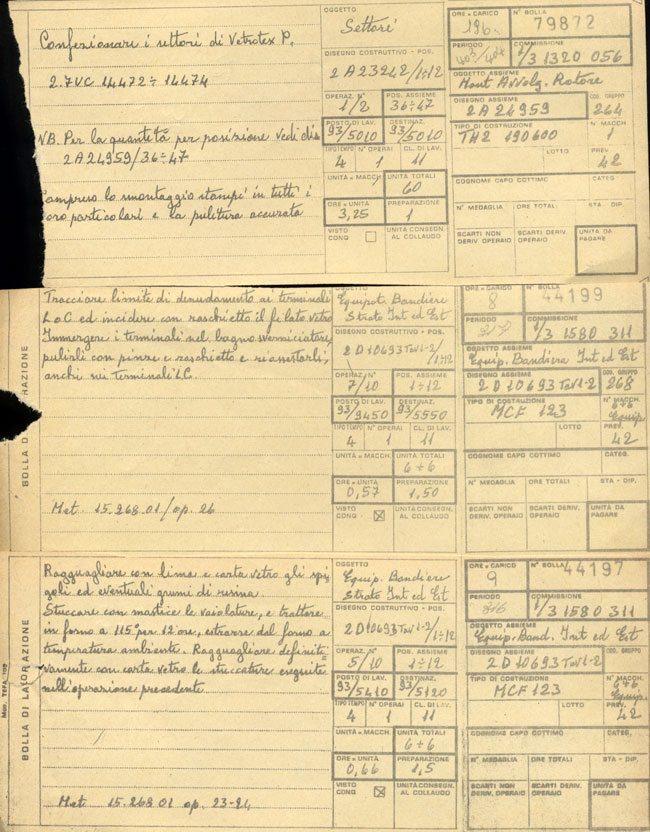 Confezionare i settori di Vetrotex P.
2.7VC 14472÷14474
NB. Per la quantità per posizione vedi dis
2A24959/36÷47
Compreso lo smontaggio stampi in tutti i
loro particolari e la pulitura accurata
OGGETTO
Settori
DISEGNO COSTRUTTIVO - POS.
2A23242/1÷12
OPERAZ. N° POS. ASSIEME
1/2 36÷47
POSTO DI LAV. DESTINAZ.
93/5010 93/5010
TIPO TEMPO N° OPERAI CL. DI LAV.
4 1 11
UNITÀ = MACCH. UNITÀ TOTALI
60
ORE = UNITÀ PREPARAZIONE
3,25 1
VISTO CONG UNITÀ CONSEGN. AL COLLAUDO
ORE = CARICO N° BOLLA
196 79872
PERIODO COMMISSIONE
1/3 1320 056
OGGETTO ASSIEME
Mont Avvolg. Rotore
DISEGNO ASSIEME COD. GRUPPO
2A24959 264
TIPO DI COSTRUZIONE N° MACCH
TH2 190600 1
LOTTO PREV.
42
COGNOME CAPO COTTIMO CATEG.
N° MEDAGLIA ORE TOTALI STA - DIP.
SCARTI NON DERIV. OPERAIO SCARTI DERIV. OPERAIO UNITÀ DA PAGARE
BOLLA DI LAVORAZIONE
Tracciare limite di denudamento ai terminali
L.o C. ed incidere con raschietto il fe lato vetro
Immergere i terminali nel bagno sverniciatore,
pulirli con pinze e raschietto e riassettarli;
anche sui Terminali LC.
Met 15.268.01/op. 26
OGGETTO
Equipot. Bandiere
Strato Int ed Est
DISEGNO COSTRUTTIVO - POS.
2D10693 Tav 1-2/
1÷12
OPERAZ. N° POS. ASSIEME
7/10 1÷12
POSTO DI LAV. DESTINAZ.
93/9450 93/5550
TIPO TEMPO N° OPERAI CL. DI LAV.
4 1 11
UNITÀ = MACCH. UNITÀ TOTALI
6÷6
ORE = UNITÀ PREPARAZIONE
0,57 1,50
VISTO CONG - UNITÀ CONSEGN. AL COLLAUDO
ORE = CARICO N° BOLLA
8 44199
PERIODO COMMISSIONE
1/3 1580 311
OGGETTO ASSIEME
Equip. Bandiera Int ed Est
DISEGNO ASSIEME COD. GRUPPO
2D10693 Tav 1-2 268
TIPO DI COSTRUZIONE N° MACCH.
MCF 123 6+6
Equip.
LOTTO PREV.
42
COGNOME CAPO COTTIMO CATEG.
N° MEDAGLIA ORE TOTALI STA - DIP.
SCARTI NON DERIV. OPERAIO SCARTI DERIV. OPERAIO UNITÀ DA PAGARE
BOLLA DI LAVORAZIONE
Ragguagliare con lima e carta vetro gli spi
goli ed eventuali grumi di resina.
Stuccare con mastice le vaiolature, e trattare
in forno a 115° per 12 ore, estrarre dal forno a
temperatura ambiente. Ragguagliare definiti
vamente con carta vetro le stuccature eseguite
nell'operazione precedente.
Met 15.268.01 op. 23-24
OGGETTO
Equip. Bandiere
Strato Int ed Est
DISEGNO COSTRUTTIVO - POS.
2D10693 Tav 1-2/
1÷12
OPERAZ. N° POS. ASSIEME
5/10 1÷12
POSTO DI LAV. DESTINAZ.
93/5410 93/5120
TIPO TEMPO N° OPERAI CL. DI LAV.
4 1 11
UNITÀ = MACCH. UNITÀ TOTALI
6÷6
ORE = UNITÀ PREPARAZIONE
0,66 1,5
VISTO CONG UNITÀ CONSEGN. AL COLLAUDO
ORE = CARICO N° BOLLA
9 44197
PERIODO COMMISSIONE
1/3 1580 311
OGGETTO ASSIEME
Equip. Band. Int ed Est
DISEGNO ASSIEME COD. GRUPPO
2D10693 Tav 1-2 268
TIPO DI COSTRUZIONE N° MACCH.
MCF 123 6+6
Equip.
LOTTO PREV.
42
COGNOME CAPO COTTIMO CATEG.
N° MEDAGLIA ORE TOTALI STA - DIP.
SCARTI NON DERIV. OPERAIO SCARTI DERIV. OPERAIO UNITÀ DA PAGARE